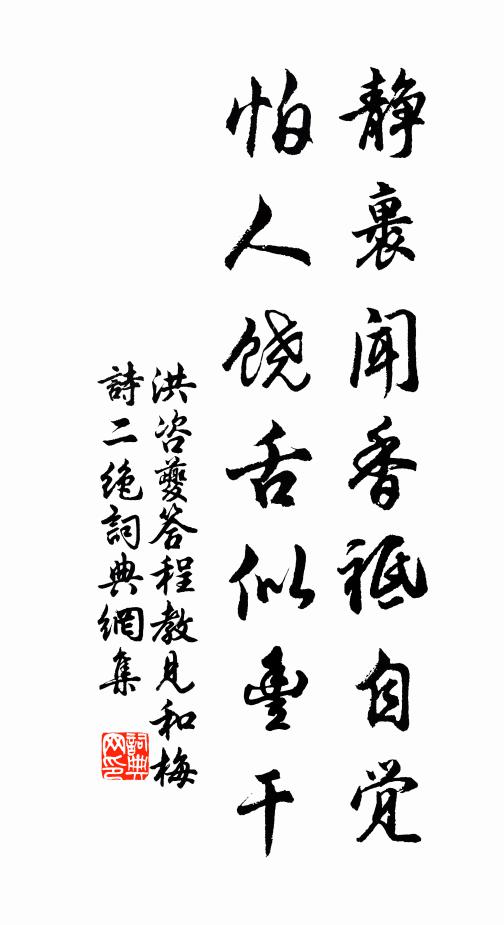 静裹闻香祗自觉
怕人饶舌似豊干
洪咨夔答程教见和梅
詩二绝詞典網集
詞典网印